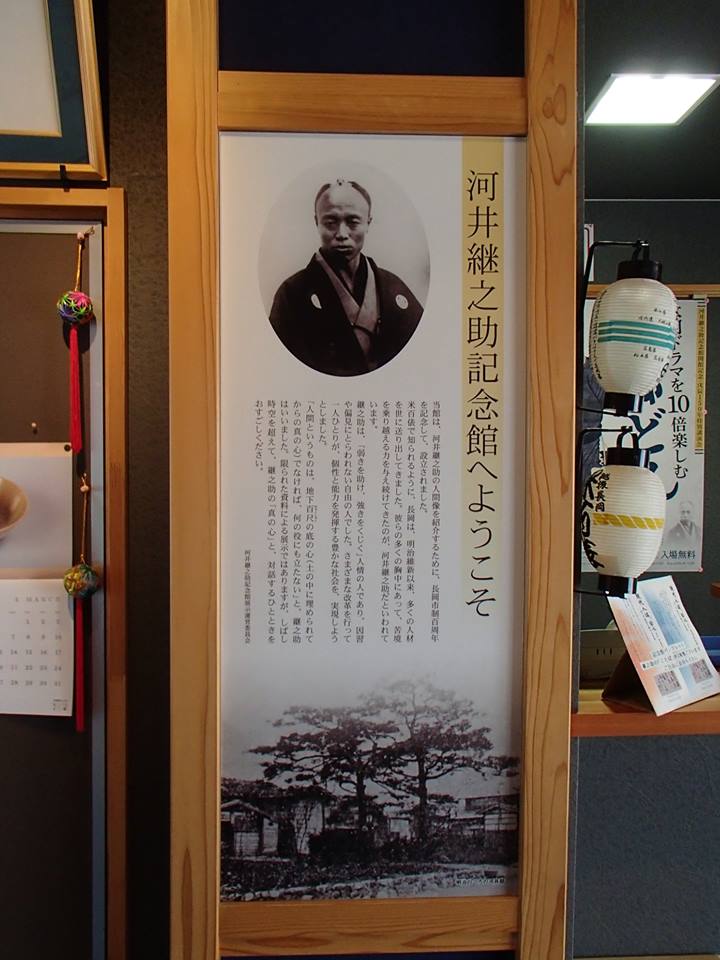 河井継之助記念館へようこそ
当館は、河井継之助の人間像を紹介するために、長岡市制百周年
を記念して、設立されました。
米百俵で知られるように、長岡は、明治維新以来、多くの人材
を世に送り出してきました。彼らの多くの胸中にあって、苦境
を乗り越える力を与え続けてきたのが、河井継之助だといわれて
います。
継之助は、「弱きを助け、強きをくじく」人情の人であり、因習
や偏見にとらわれない自由の人でした。さまざまな改革を行って
一人ひとりが、個性と能力を発揮する豊かな社会を、実現しよう
としました。
「人間というものは、地下百尺の底の心(土の中に埋められて
からの真の心)でなければ、何の役にも立たない」と、継之助
はいいました。限られた資料による展示ではありますが、しばし
時空を超えて、継之助の「真の心」と、対話するひとときを
おすごしください。
河井継之助記念館展示運営委員会
ドラマを10倍楽しむ
入場無料
長岡
MARCH